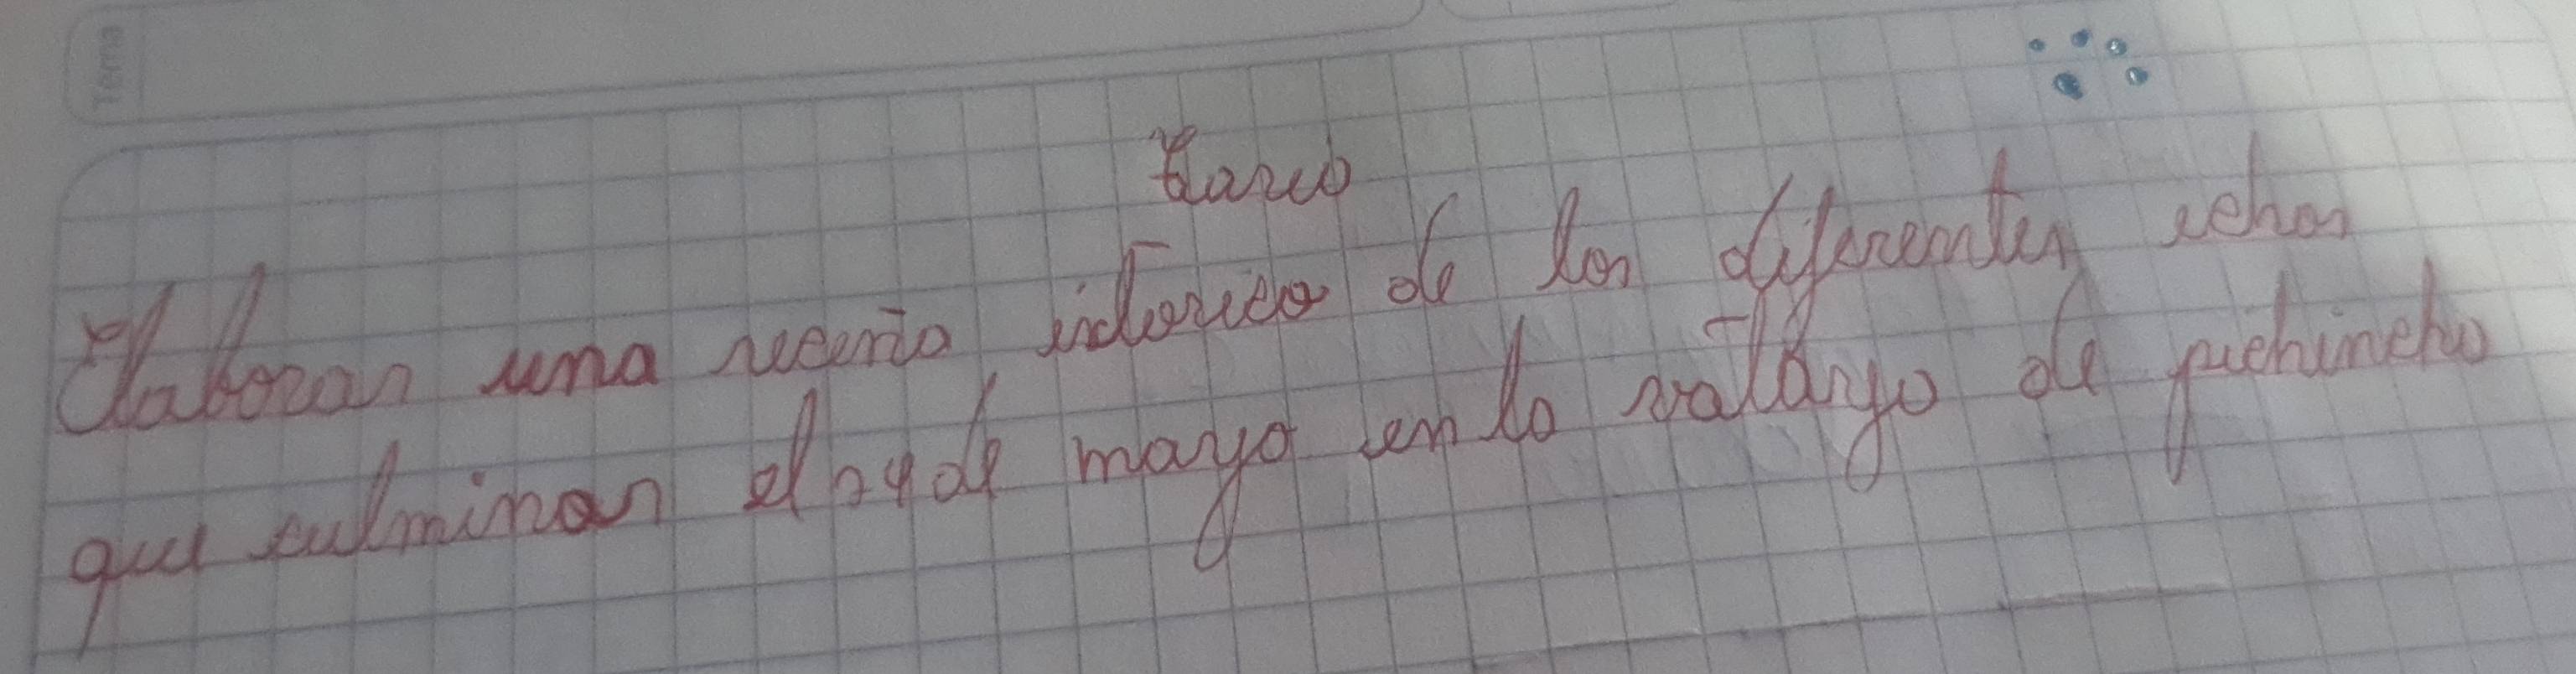 Tema
Tarea
Elaboran una reseña istorica de los diferentes echos
que culminan el 24 de mayo en la vatalya de pichincha